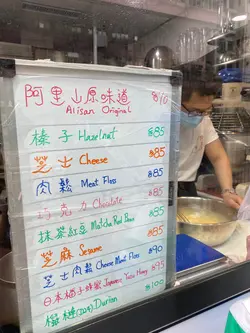 阿里山原味道 $80
Alisan Original
榛子 Hazelnut $85
芝士 Cheese $85
肉鬆 Meat Floss $85
巧克力 Chocolate $85
抹茶紅豆 Matcha Red Bean $85
芝麻 Sesame $85
芝士肉鬆 Cheese Meat Floss $90
日本柚子蜂蜜 Japanese Yuzu Honey $95
榴槤 Durian $100